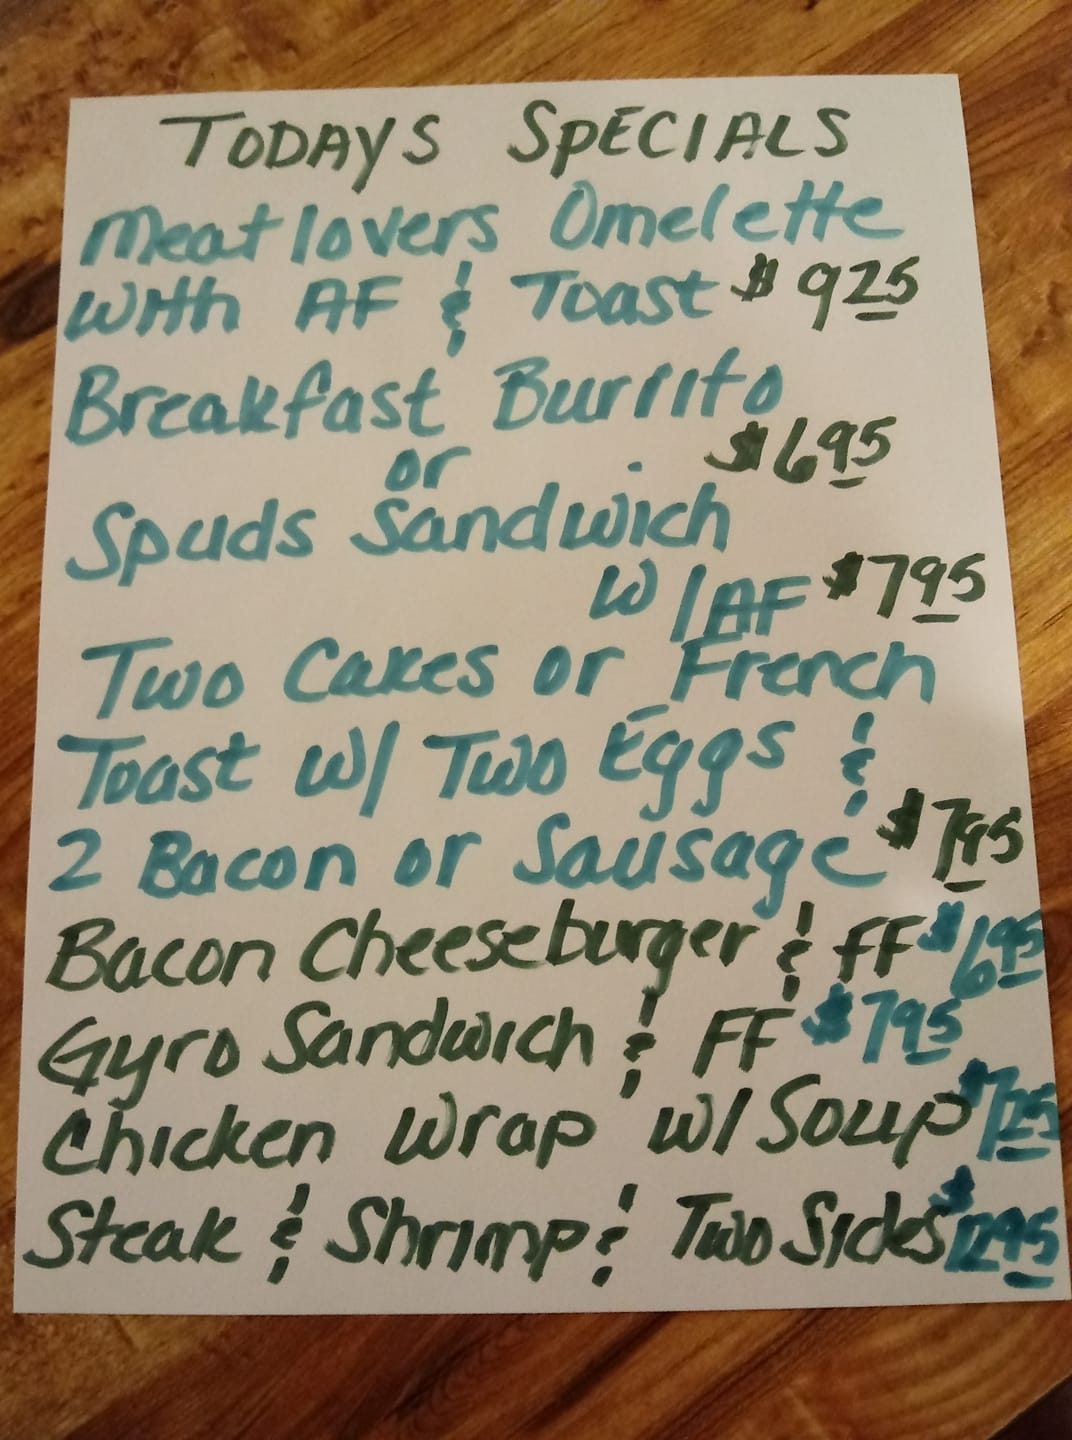 TODAYS SPECIALS
Meatlovers Omelette
with AF & Toast $925
Breakfast Burrito
or $695
Spuds Sandwich
W/AF $795
Two Cakes or French
Toast w/ Two Eggs &
2 Bacon or Sausage $795
Bacon Cheeseburger & FF $695
Gyro Sandwich & FF $795
Chicken Wrap w/ Soup $725
Steak & Shrimp & Two Sides $1295